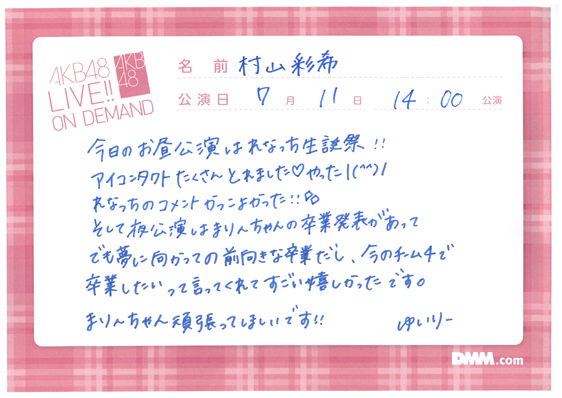 AKB48
LIVE!!
ON DEMAND
AKB
48
名 前 村山彩希
公演日 7 月 11 日 14 : 00 公演
今日のお昼公演はれなっち生誕祭!!
アイコンタクトたくさんとれました♡やった!(^^)!
れなっちのコメントかっこよかった!!
そして夜公演はまりんちゃんの卒業発表があって
でも夢に向かっての前向きな卒業だし、今のチーム4で
卒業したいって言ってくれてすごい嬉しかったです。
まりんちゃん頑張ってほしいです!!
ゆいりー
DMM.com